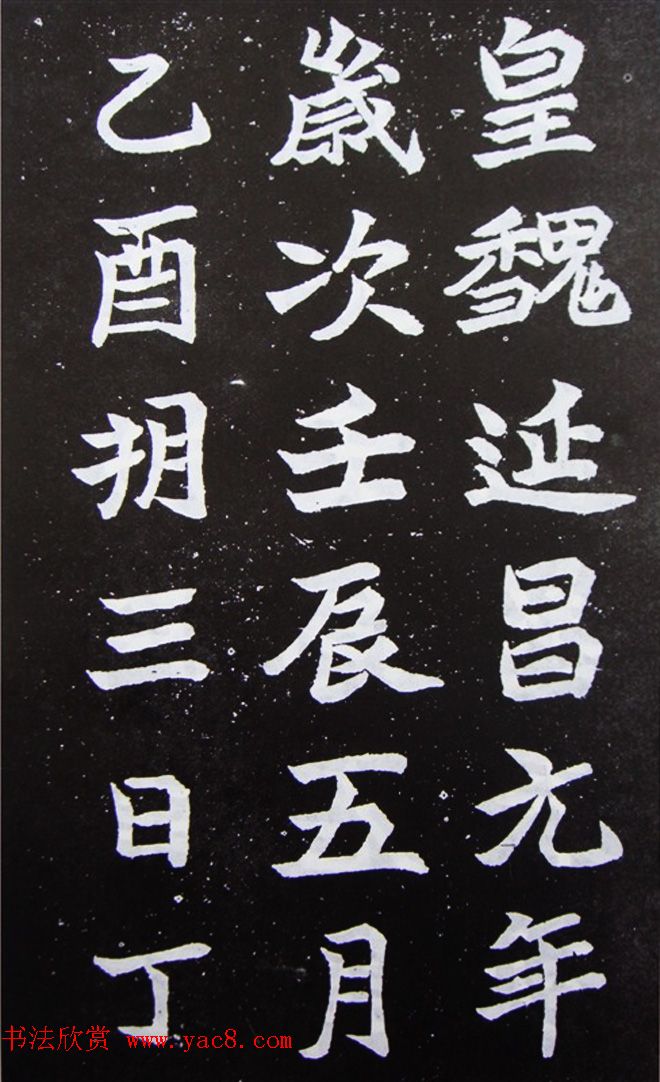 皇魏延昌元年
歲次壬辰五月
乙酉朔三日丁
书法欣赏 www.yac8.com